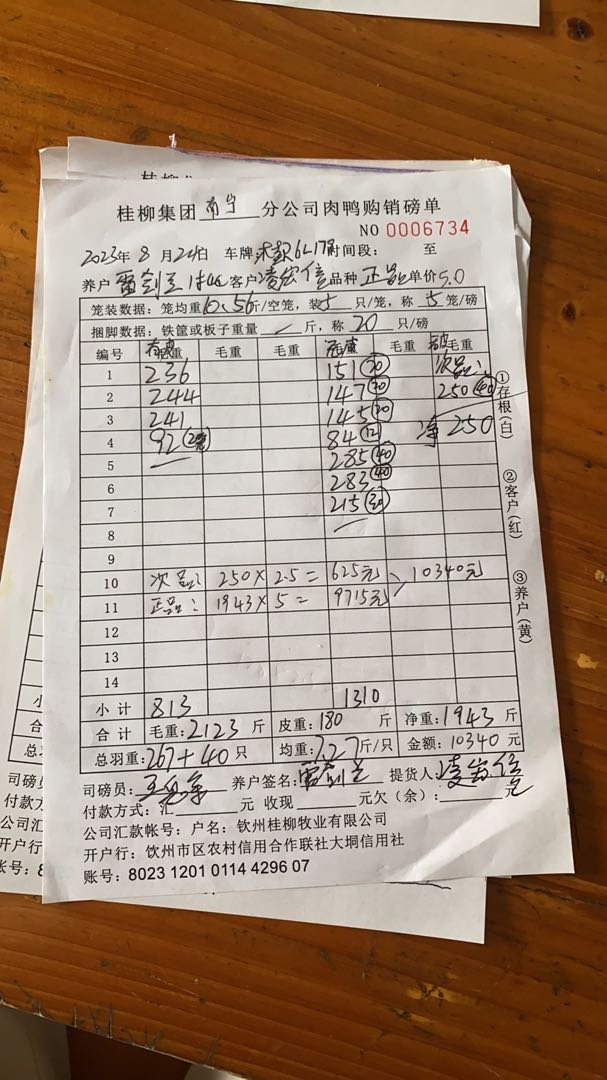 桂柳集团 南宁 分公司肉鸭购销磅单
NO 0006734
2023年 8 月24日 车牌 6L178 时间段: 至
养户 雷剑兰 客户 凌宏信 品种 正品 单价5.0
笼装数据: 笼均重 10.56 斤/空笼, 装 5 只/笼, 称 5 笼/磅
捆脚数据: 铁筐或板子重量 — 斤, 称 20 只/磅
编号 毛重 毛重 毛重 毛重 毛重 毛重
1 236 151(20) 次品:
2 244 147(20) 250(40)
3 241 145(20)
4 92 84(12) 净250
5 285(40)
6 283(40)
7 215(30)
8
9
10 次品: 250×2.5= 625元 10340元
11 正品: 1943×5= 9715元
12
13
14
小 计 813 1310
合 计 毛重:2123 斤 皮重:180 斤 净重:1943 斤
总羽重:267+40 只 均重:7.27斤/只 金额:10340 元
司磅员: 养户签名:雷剑兰 提货人:凌宏信
付款方式:汇 元 收现 元欠(余): 元
公司汇款帐号: 户名: 钦州桂柳牧业有限公司
开户行: 钦州市区农村信用合作联社大垌信用社
账号: 8023 1201 0114 4296 07
①存根(白)
②客户(红)
③养户(黄)